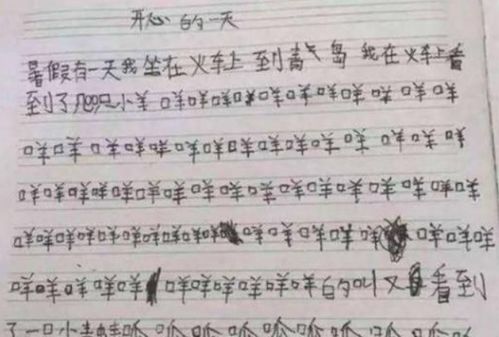 开心的一天
暑假有一天我坐在火车上到青岛我在火车上看
到了几00只小羊咩咩咩咩咩咩咩咩咩咩咩咩咩咩
咩咩咩咩咩咩咩咩咩咩咩咩咩咩咩咩咩咩咩
咩咩咩咩咩咩咩咩咩咩咩咩咩咩咩咩咩咩咩咩
咩咩咩咩咩咩咩咩咩咩咩咩咩咩咩咩咩咩咩咩
咩咩咩咩咩咩咩咩咩咩咩咩的叫又看到
了一只小青蛙呱呱呱呱呱呱呱呱呱